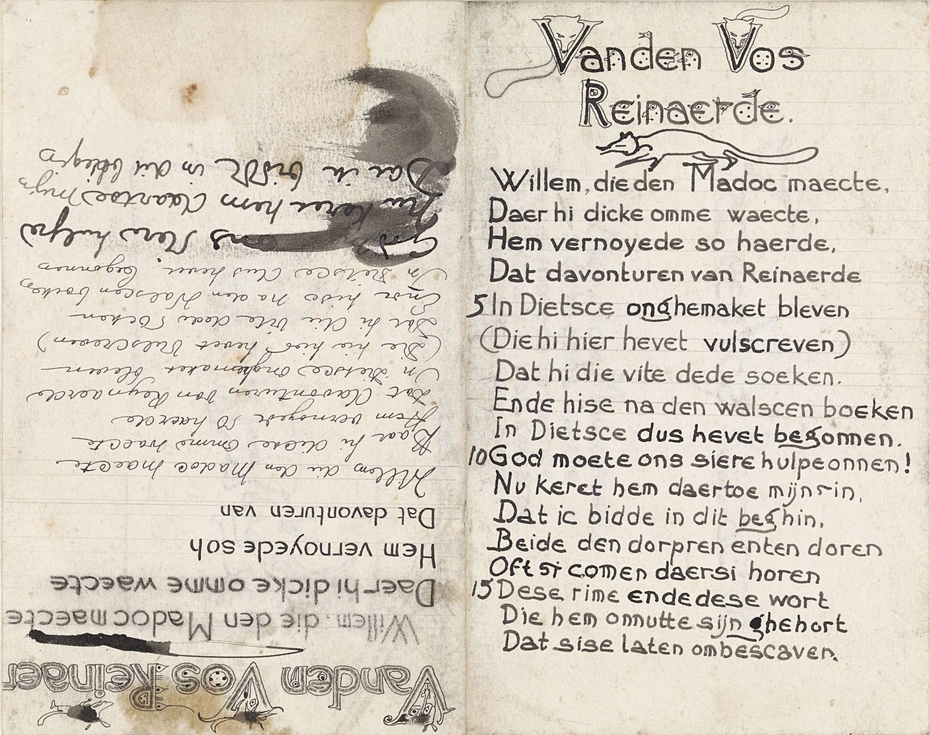 Vanden Vos
Reinaerde.
Willem, die den Madoc maecte,
Daer hi dicke omme waecte,
Hem vernoyede so haerde,
Dat davonturen van Reinaerde
5 In Dietsce onghemaket bleven
(Die hi hier hevet vulscreven)
Dat hi die vite dede soeken.
Ende hise na den walscen boeken
In Dietsce dus hevet begonnen.
10 God moete ons siere hulpe onnen!
Nu keret hem daertoe mijn sin,
Dat ic bidde in dit beghin,
Beide den dorpren enten doren
Oft si comen daer si horen
15 Dese rime ende dese wort
Die hem onnutte sijn ghehort
Dat sise laten onbescaven.
Vanden Vos Reinaer
Willem, die den Madoc maecte
Daer hi dicke omme waecte
Hem vernoyede soh
Dat davonturen van
Willem die den Madoc maecte
Daer hi dicke omme waecte
Hem vernoyede so haerde
Dat davonturen van Reynaerde
In Dietsce onghemaket bleven
(Die hi hier hevet vulscreven)
Dat hi die vite dede soeken
Ende hise na den Walscen boeken
In Dietsce dus hevet begonnen
God ons siere hulpe
Nu keret hem daertoe mijn
Dat ic bidde in dit